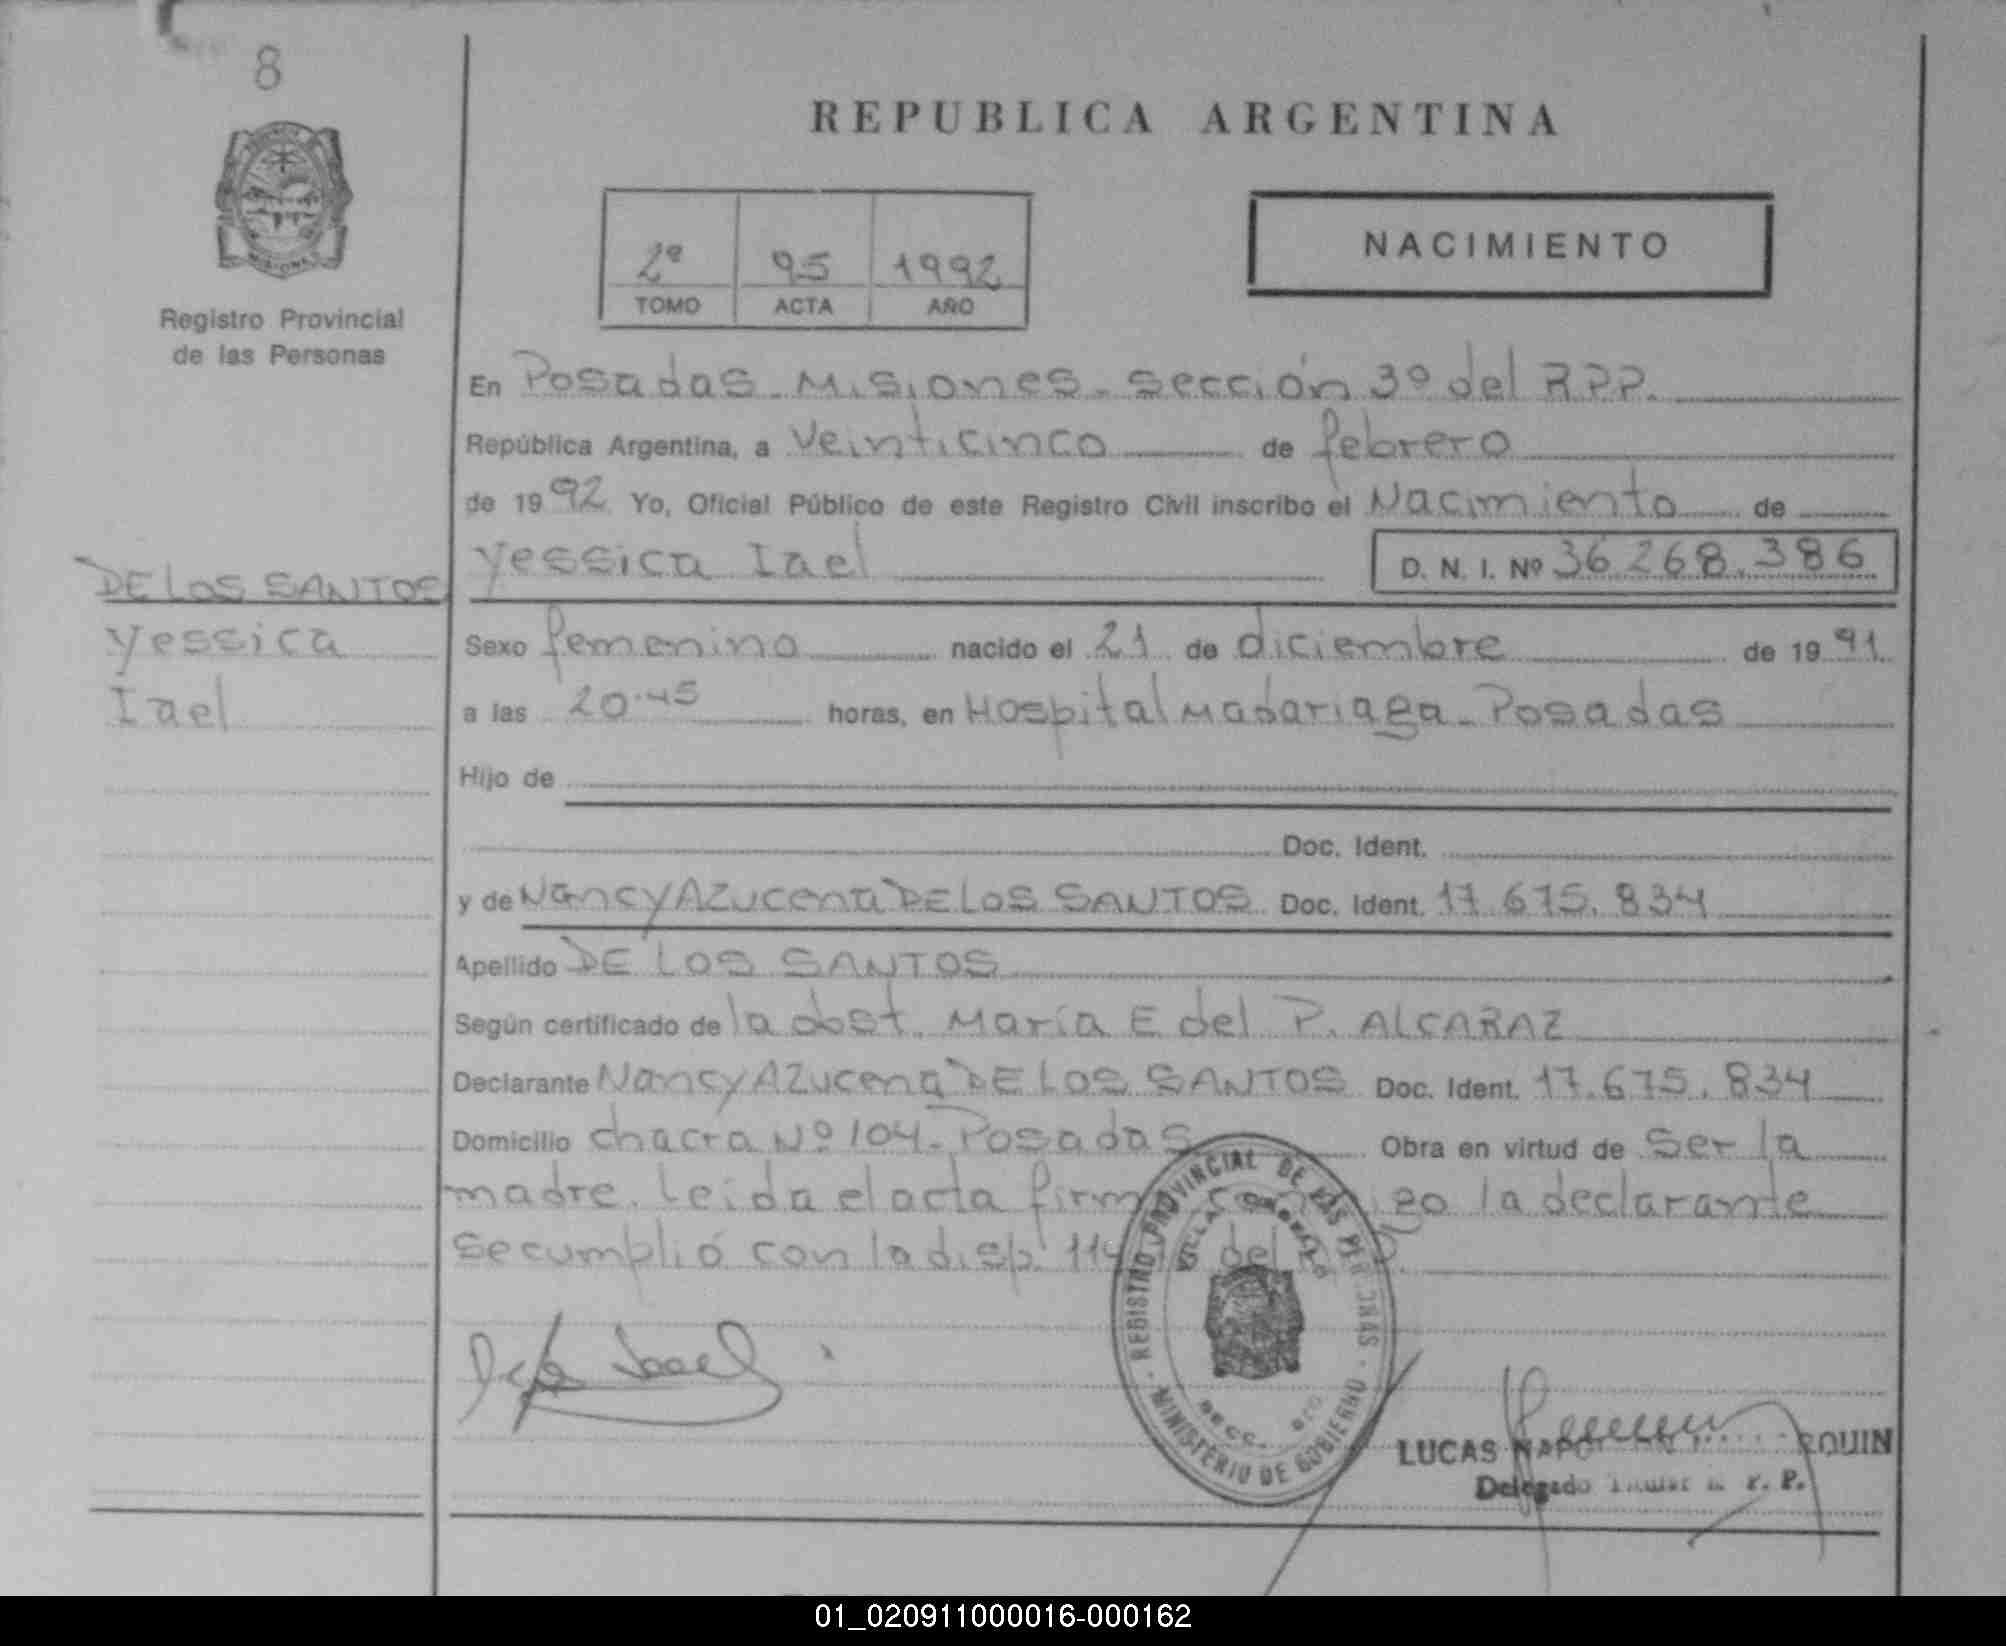 8
REPUBLICA ARGENTINA
NACIMIENTO
2º 95 1992
TOMO ACTA AÑO
Registro Provincial
de las Personas
En Posadas - Misiones - sección 3º del R.P.P.
República Argentina, a veinticinco de febrero
de 1992 Yo, Oficial Público de este Registro Civil inscribo el Nacimiento de
Yessica Iael D. N. I. Nº 36.268.386
DE LOS SANTOS
Yessica
Iael
Sexo femenino nacido el 21 de diciembre de 1991
a las 20.45 horas, en Hospital Madariaga - Posadas
Hijo de
Doc. Ident.
y de Nancy Azucena DE LOS SANTOS Doc. Ident. 17.675.834
Apellido DE LOS SANTOS
Según certificado de la obst. María E del P. ALCARAZ
Declarante Nancy Azucena DE LOS SANTOS Doc. Ident. 17.675.834
Domicilio chacra Nº 104 - Posadas Obra en virtud de ser la
madre. Leida el acta firma conmigo la declarante
se cumplió con la disp. 114 del
REGISTRO PROVINCIAL DE LAS PERSONAS - MINISTERIO DE GOBIERNO -
VILLA
SECC.
LUCAS
Delegado R. P. P.
01_020911000016-000162